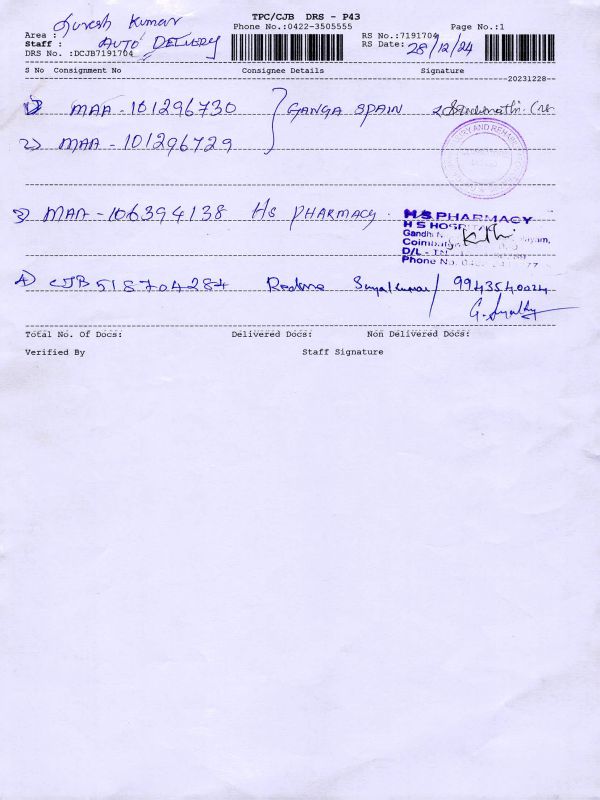 Suresh Kumar
TPC/CJB DRS - P43
Phone No.:0422-3505555
Page No.:1
Area :
RS No.:7191704
Staff : AUTO DELIVERY
RS Date: 28/12/24
DRS No. :DCJB7191704
S No Consignment No Consignee Details Signature
20231228
1) MAA - 101296730 GANGA SPAIN
2) MAA - 101296729
3) MAA - 106394138 HS PHARMACY.
H S PHARMACY
H S HOSPITAL
Gandhi
D/L - TN
Phone No.
4) CJB 518704284 9943540024
Total No. Of Docs: Delivered Docs: Non Delivered Docs:
Verified By Staff Signature